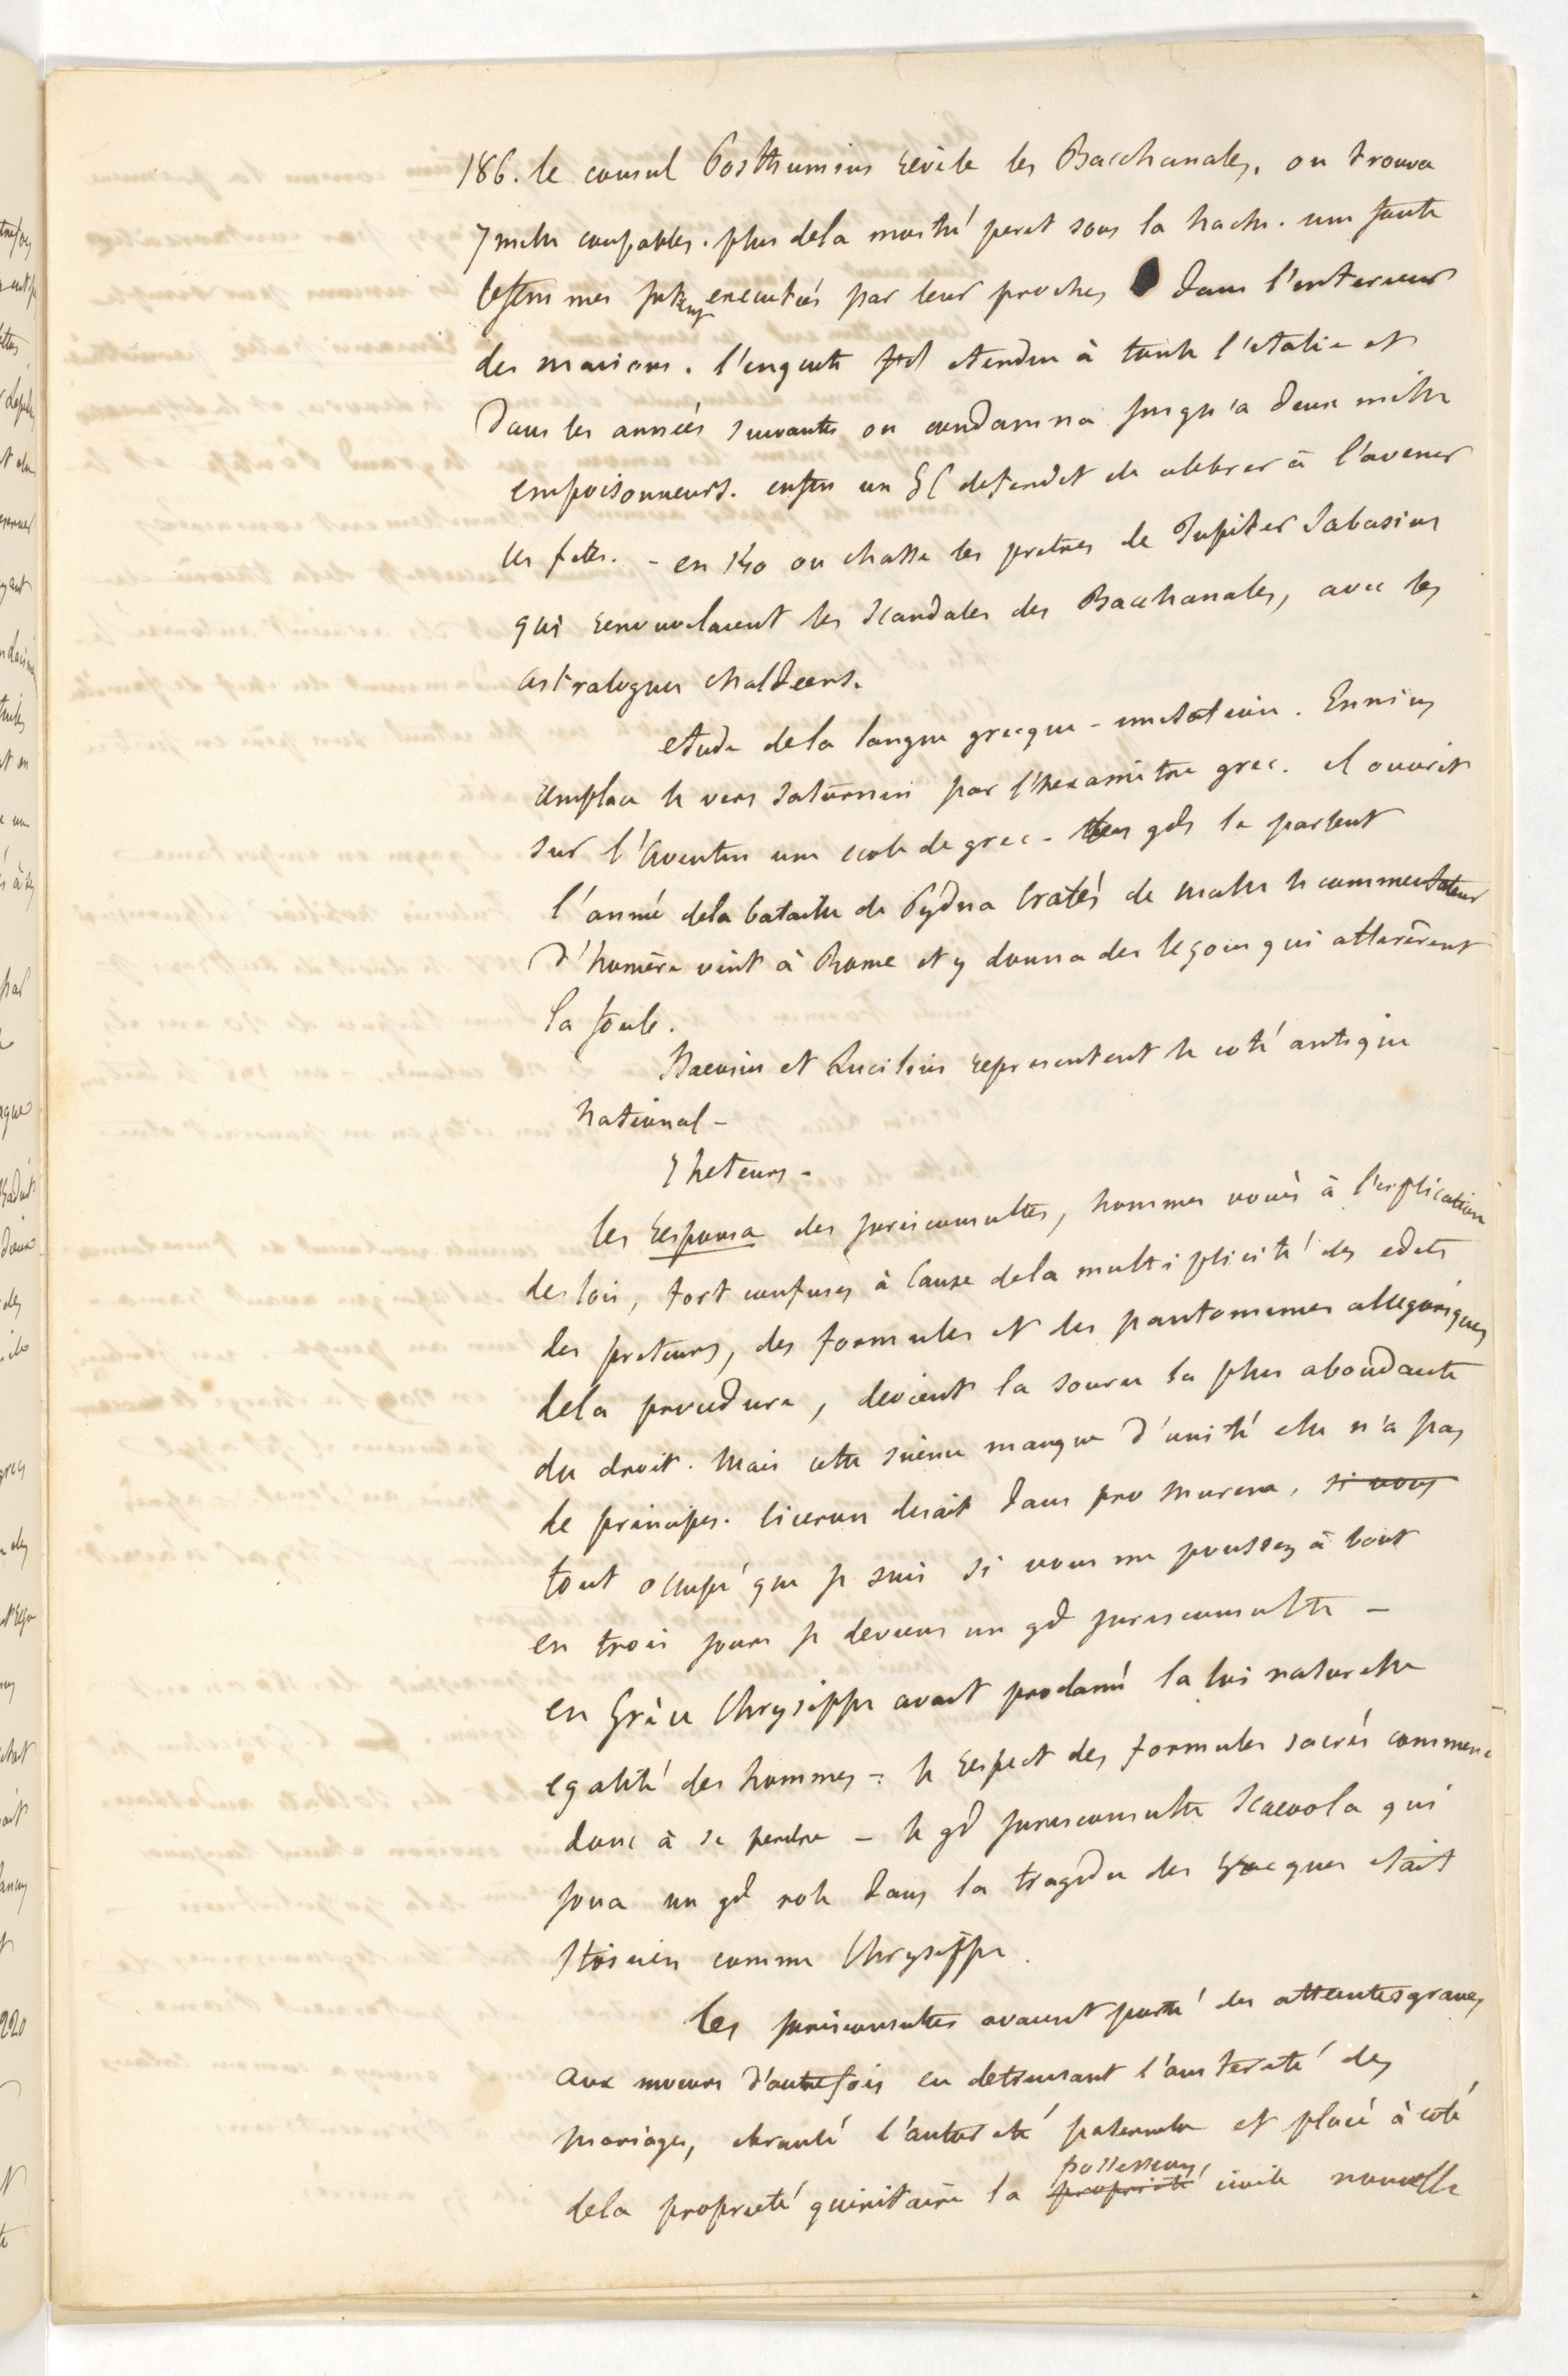 186. le consul Posthumius revèle les Bacchanales. on trouva
7 mille coupables. plus dela moitié perit sous la hache. une foule
de femmes furent executées par leur proches dans l'interieur
des maisons. l'enquete fut etendue à toute l'italie et
dans les années suivantes on condamna jusqu'a deux mille
empoisonneurs. enfin un SC defendit de celebrer à l'avenir
les fetes. - en 140 on chasse les pretres de Jupiter Sabasius
qui renouvelaient les scandales des Bacchanales, avec les
astrologues chaldeens.
etude dela langue grecque - imitation. Ennius
remplace le vers saturnin par l'hexamètre grec. il ouvrit
sur l'Aventin une ecole de grec - les gds le parlent
l'année dela bataille de Pydna Cratès de Malle le commentateur
d'homère vint à Rome et y donna des leçons qui attirèrent
la foule.
Naevius et Lucilius representent le coté antique
national -
rheteurs -
les responsa des jurisconsultes, hommes voués à l'explication
des lois, fort confuses à cause dela multiplicité des edits
des preteurs, des formules et des pantomimes allegoriques
dela procedure, devient la source la plus abondante
du droit. Mais cette science manque d'unité elle n'a pas
de principes. Ciceron disait dans pro Murena, si vous
tout occupé que je suis si vous me poussez à bout
en trois jours je deviens un gd jurisconsulte -
en Grèce Chrysippe avait proclamé la loi naturelle
egalité des hommes - le respect des formules sacrées commence
donc à se perdre - le gd jurisconsulte Scaevola qui
joua un gd role dans la tragedie des Gracques etait
stoicien comme Chrysippe.
les jurisconsultes avaient porté des atteintes graves
aux moeurs d'autrefois en detruisant l'austerité des
mariages, ebranlé l'autorité paternelle et placé à coté
dela proprieté quiritaire la propriété possession, civile nouvelle